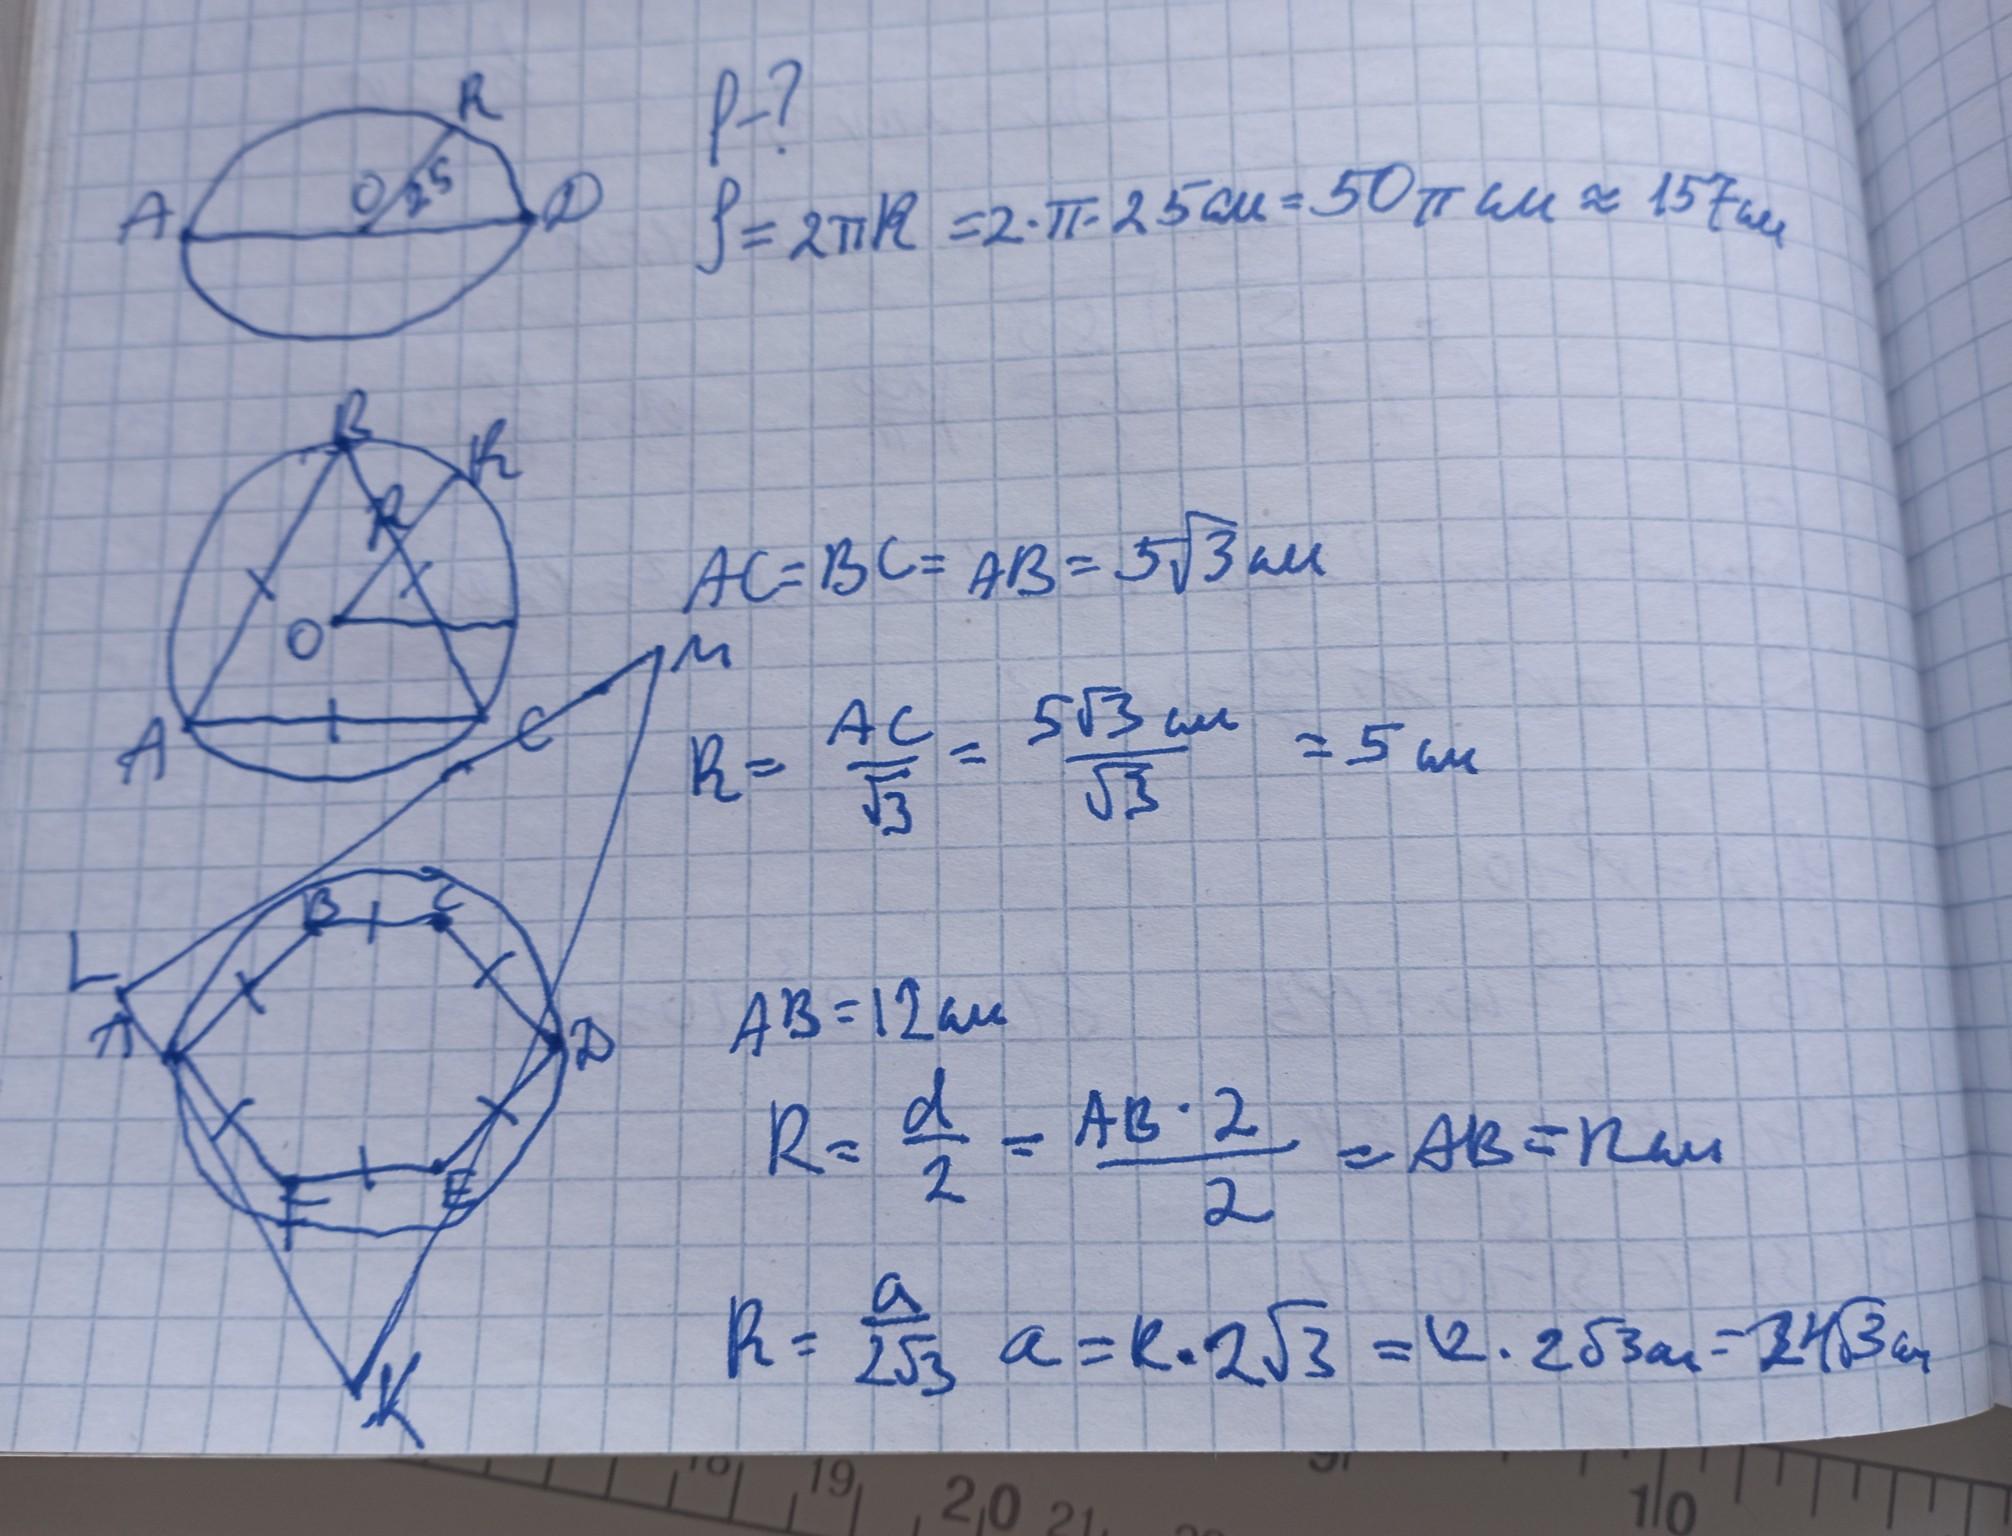 R
O 25
A D
ρ-?
ρ = 2πR = 2·π·25 см = 50π см ≈ 157 см
B K
R
O
A C
AC = BC = AB = 5√3 см
R = AC/√3 = 5√3 см/√3 = 5 см
M
L
B C
A D
F E
K
AB = 12 см
R = d/2 = AB·2/2 = AB = 12 см
R = a/2√3 a = R·2√3 = 12·2√3 см = 24√3 см
18 19 20 21
9 10